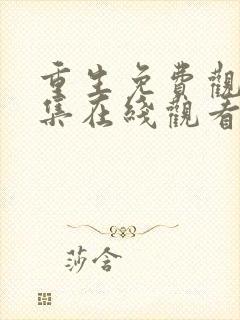 重生免費觀
集在綫觀看
莎含